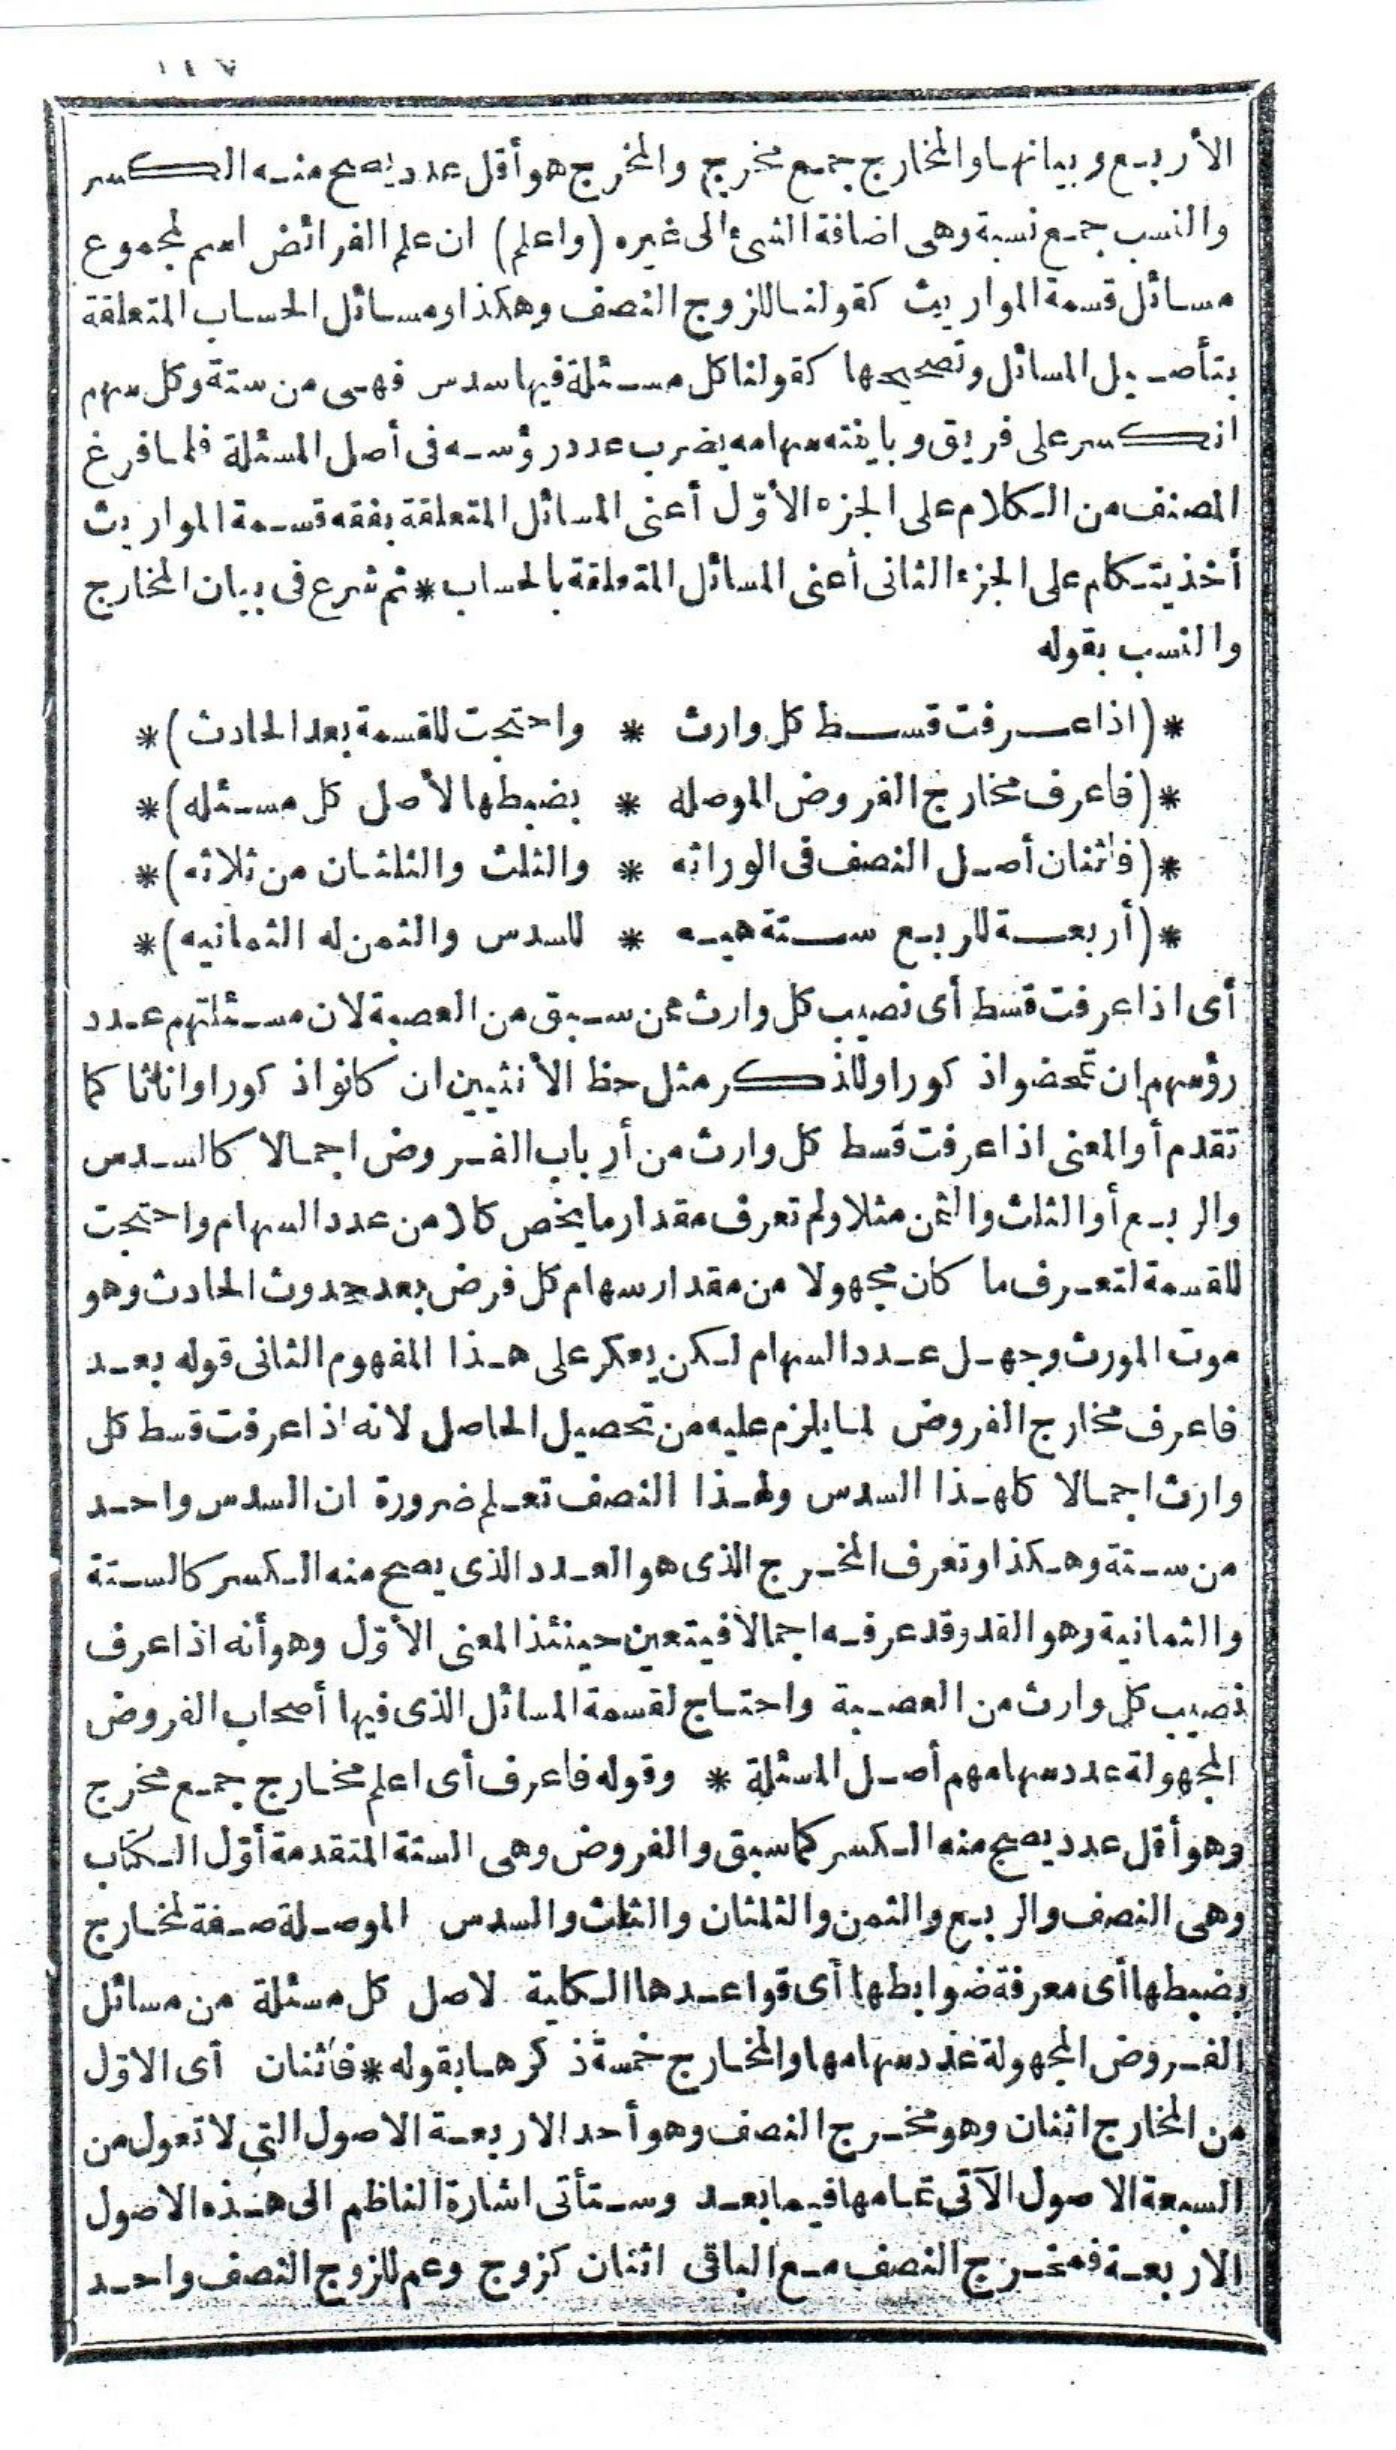 ١٤٧
الأربع وبيانها والمخارج جمع مخرج والمخرج هو أقل عدد يصح منه الكسر
والنسب جمع نسبة وهى اضافة الشئ الى غيره (واعلم) ان علم الفرائض اسم لمجموع
مسائل قسمة المواريث كقولنا للزوج النصف وهكذا ومسائل الحساب المتعلقة
بتأصيل المسائل وتصحيحها كقولنا كل مسئلة فيها سدس فهى من ستة وكل سهم
انكسر على فريق وباينته سهامه يضرب عدد رؤسه فى أصل المسئلة فلما فرغ
المصنف من الكلام على الجزء الأوّل أعنى المسائل المتعلقة بفقه قسمة المواريث
أخذ يتكلم على الجزء الثانى أعنى المسائل المتعلقة بالحساب * ثم شرع فى بيان المخارج
والنسب بقوله
*(اذا عرفت قسط كل وارث * واحتجت للقسمة بعد الحادث)*
*(فاعرف مخارج الفروض الموصله * بضبطها لأصل كل مسئله)*
*(فاثنان أصل النصف فى الوراثه * والثلث والثلثان من ثلاثه)*
*(أربعة للربع ستة هيه * للسدس والثمن له الثمانيه)*
أى اذا عرفت قسط أى نصيب كل وارث ممن سبق من العصبة لان مسئلتهم عدد
رؤسهم ان تمحضوا ذكورا وللذكر مثل حظ الأنثيين ان كانوا ذكورا واناثا كما
تقدم أو المعنى اذا عرفت قسط كل وارث من أرباب الفروض اجمالا كالسدس
والربع أو الثلث والثمن مثلا ولم تعرف مقدار ما يخص كلا من عدد السهام واحتجت
للقسمة لتعرف ما كان مجهولا من مقدار سهام كل فرض بعد حدوث الحادث وهو
موت المورث وجهل عدد السهام لكن يعكر على هذا المفهوم الثانى قوله بعد
فاعرف مخارج الفروض لما يلزم عليه من تحصيل الحاصل لانه اذا عرفت قسط كل
وارث اجمالا كلهذا السدس ولهذا النصف تعلم ضرورة ان السدس واحد
من ستة وهكذا وتعرف المخرج الذى هو العدد الذى يصح منه الكسر كالستة
والثمانية وهو القد وقد عرفه اجمالا فيتعين حينئذ المعنى الأوّل وهو أنه اذا عرف
نصيب كل وارث من العصبة واحتاج لقسمة المسائل الذى فيها أصحاب الفروض
المجهولة عدد سهامهم أصل المسئلة * وقوله فاعرف أى اعلم مخارج جمع مخرج
وهو أقل عدد يصح منه الكسر كما سبق والفروض وهى الستة المتقدمة أوّل الكتاب
وهى النصف والربع والثمن والثلثان والثلث والسدس الموصلة صفة لمخارج
بضبطها أى معرفة ضوابطها أى قواعدها الكلية لاصل كل مسئلة من مسائل
الفروض المجهولة عدد سهامها والمخارج خمسة ذكرها بقوله * فاثنان أى الاوّل
من المخارج اثنان وهو مخرج النصف وهو أحد الاربعة الاصول التي لا تعول من
السبعة الاصول الآتى تمامها فيما بعد وستأتى اشارة الناظم الى هذه الاصول
الاربعة فمخرج النصف مع الباقى اثنان كزوج وعم للزوج النصف واحد